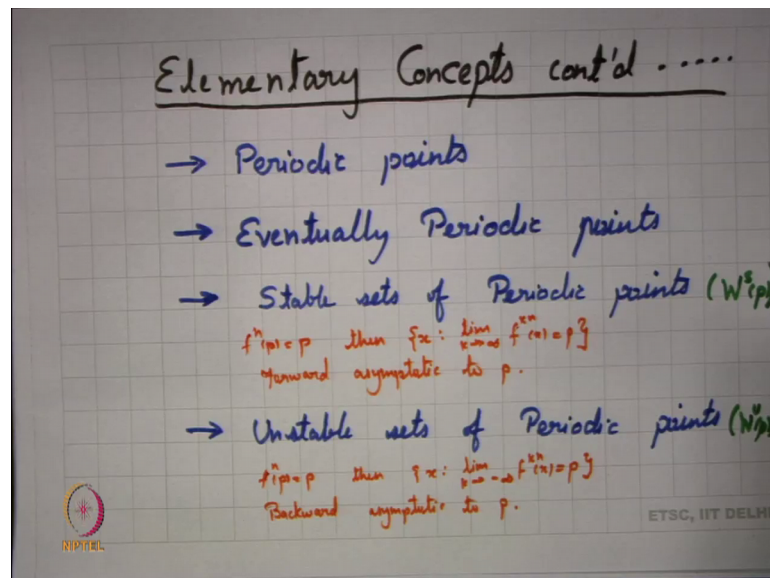 Elementary Concepts cont'd .....
→ Periodic points
→ Eventually Periodic points
→ Stable sets of Periodic points (Wˢ(p)
fⁿ(p) = p then {x : lim k→∞ fᵏⁿ(x) = p}
forward asymptotic to p.
→ Unstable sets of Periodic points (Wᵘ(p)
fⁿ(p) = p then {x : lim k→-∞ fᵏⁿ(x) = p}
Backward asymptotic to p.
ETSC, IIT DELHI
NPTEL